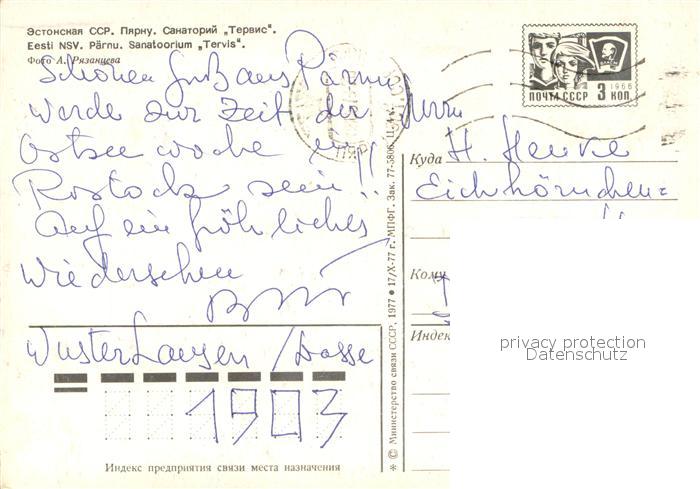 Эстонская ССР. Пярну. Санаторий „Тервис".
Eesti NSV. Pärnu. Sanatoorium „Tervis".
Фото А. Рязанцева
Schönen Gruß aus Pärnu
werde zur Zeit der
Ostseewoche in
Rostock sein!!
Auf ein fröhliches
Wiedersehen
Wusterhausen / Dosse
1903
Индекс предприятия связи места назначения
* © Министерство связи СССР, 1977 ● 17/X-77 г. МПФГ. Зак. 77-5806. Ц. 4 к.
1966
ПОЧТА СССР 3 КОП
Куда H. Henke
Eichhörnchen=
Кому
Индек
privacy protection
Datenschutz